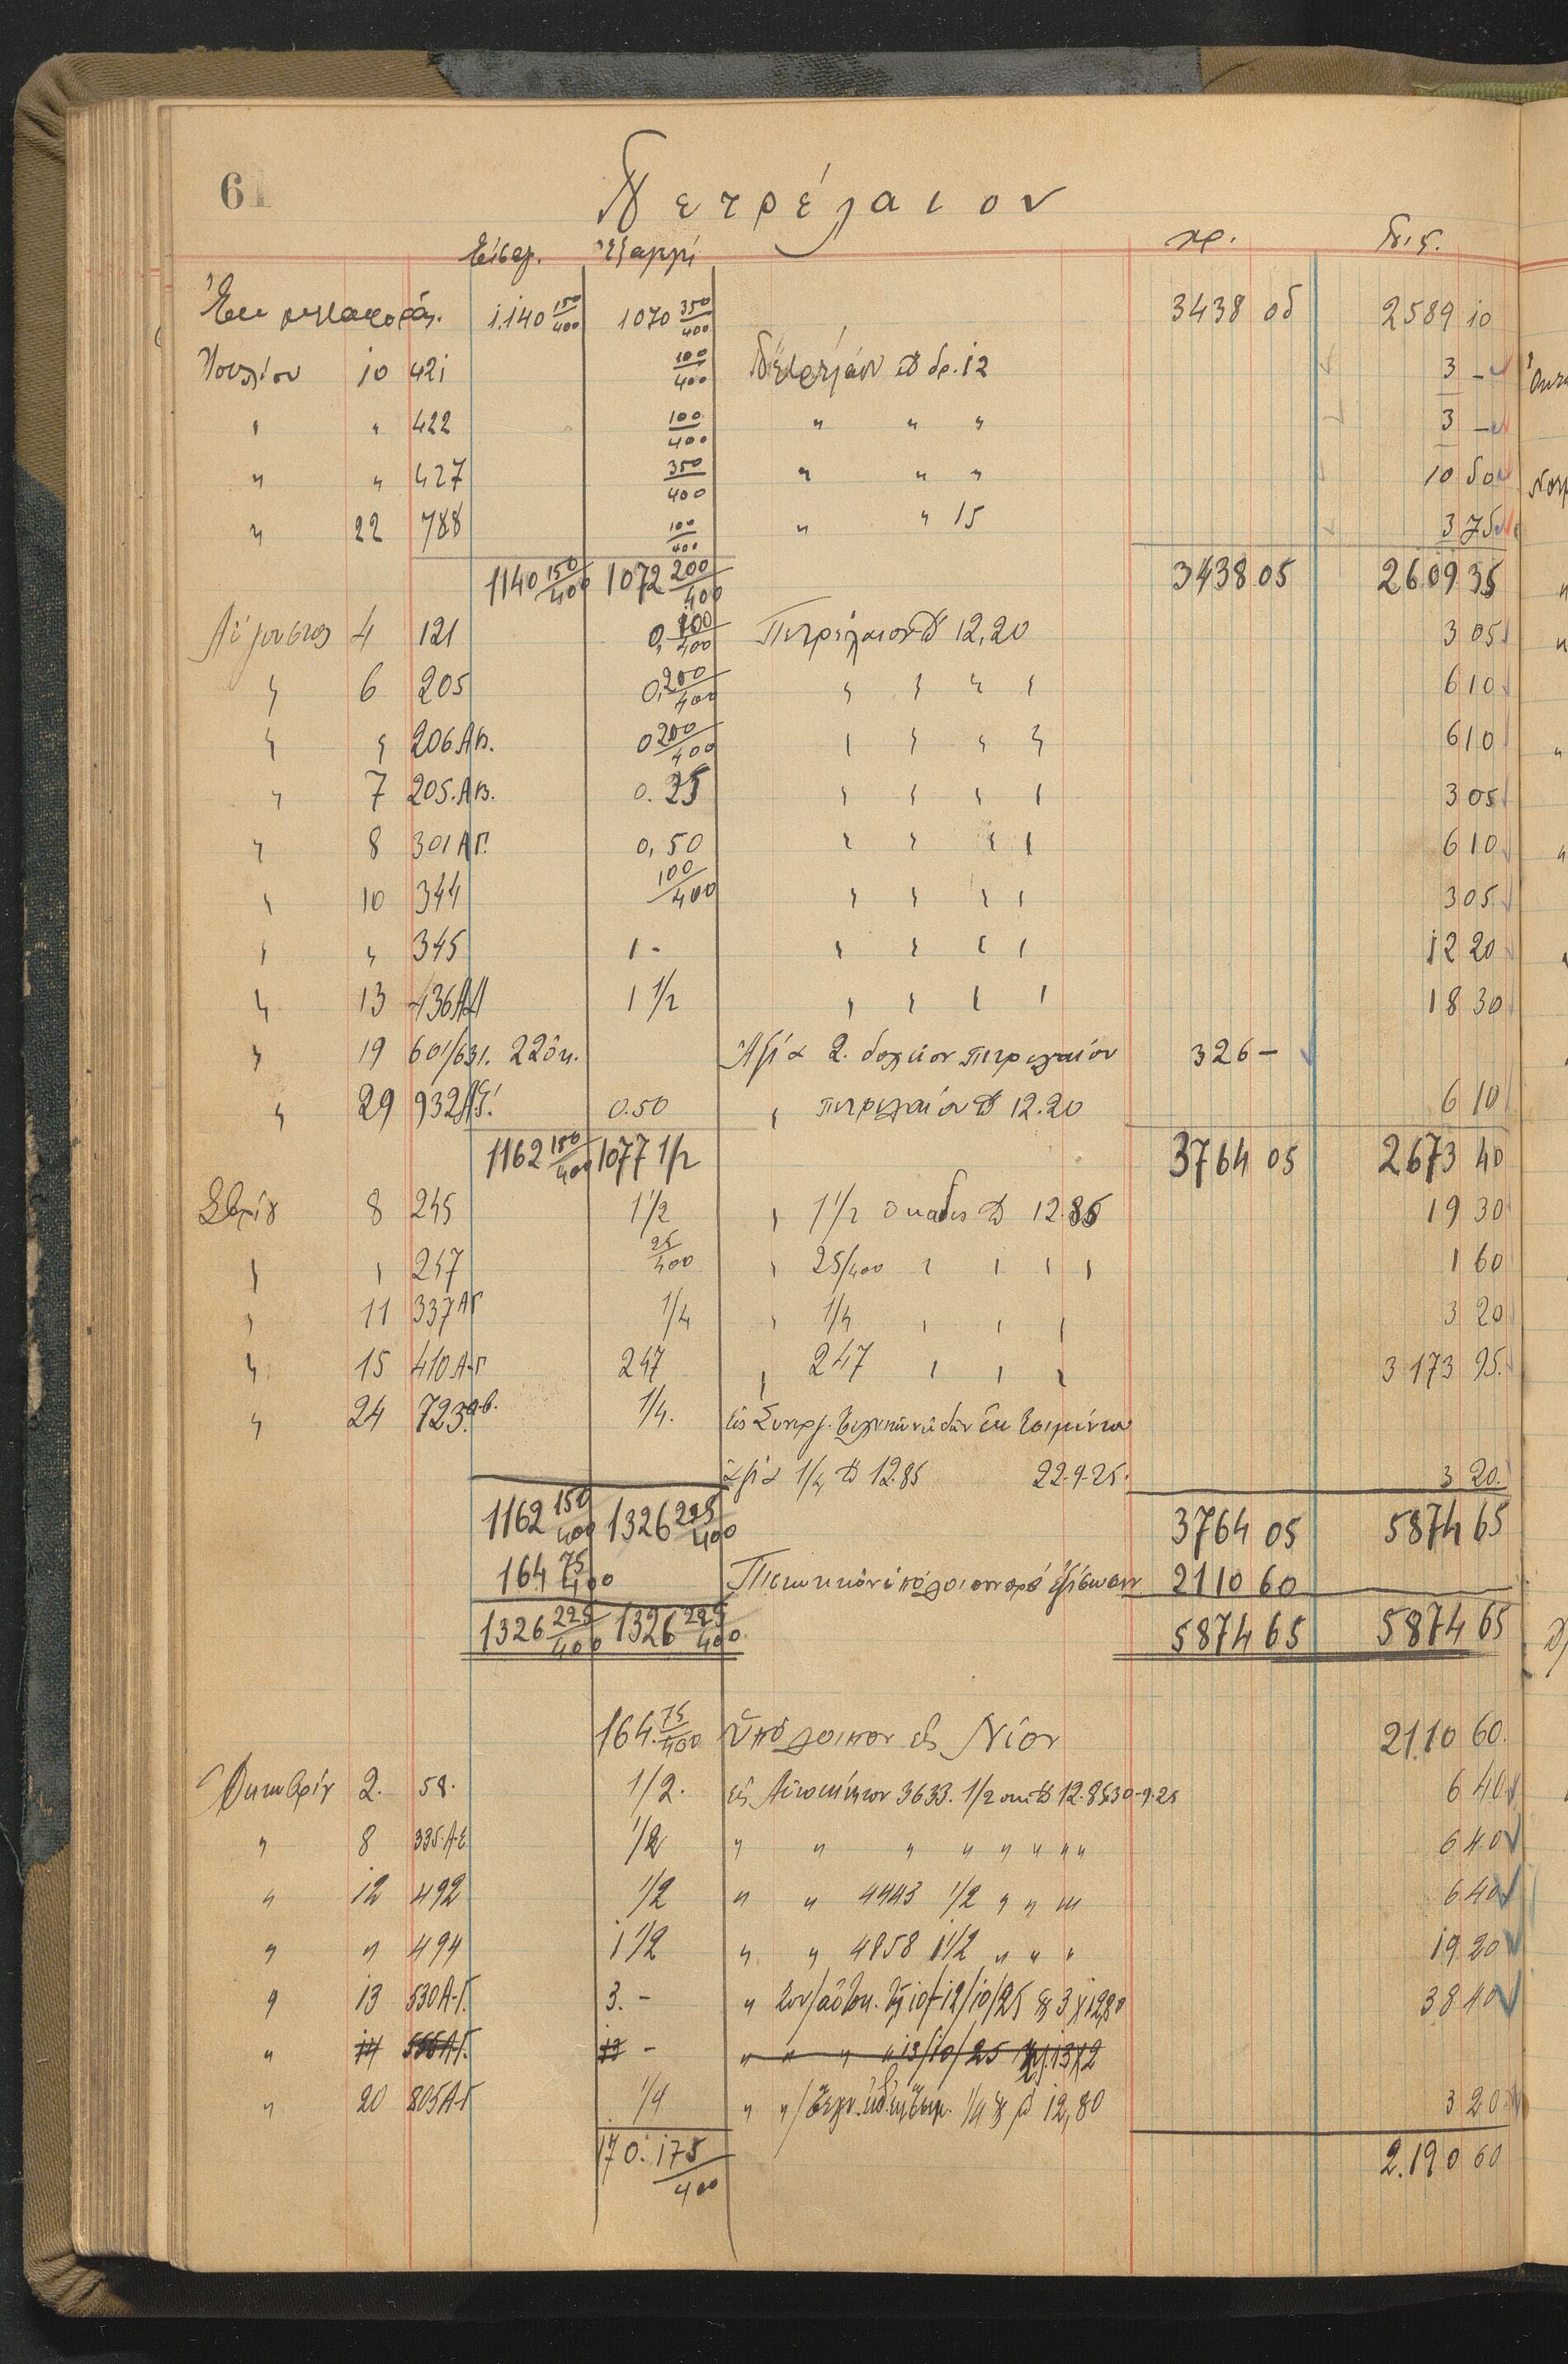 61
Πετρέλαιον
Εἰσαγ. Ἐξαγωγή χρ. πισ.
Ἐκ μεταφορᾶς. 1.140 150/400 1070 350/400 3438 05 2589 10
Ἰουλίου 10 421 100/400 Πετρελαίου @ δρ. 12 3 -
" " 422 100/400 " " " 3 -
" " 427 350/400 " " " 10 50
" 22 788 100/400 " " 15 3 75
1140 150/400 1072 200/400 3438 05 2609 35
Αὔγουστος 4 121 0, 100/400 Πετρέλαιον @ 12,20 3 05
" 6 205 0, 200/400 " " " " 6 10
" " 206 ΑΒ. 0 200/400 " " " " 6 10
" 7 205. ΑΒ. 0. 25 " " " " 3 05
" 8 301 ΑΓ. 0, 50 " " " " 6 10
" 10 344 100/400 " " " " 3 05
" " 345 1 - " " " " 12 20
" 13 436 ΑΔ 1 1/2 " " " " 18 30
" 19 601/631. 22 ὀκ. Ἀξία 2. δοχείων πετρελαίου 326 -
" 29 932 0.50 " πετρελαίου @ 12.20 6 10
1162 150/400 1077 1/2 3764 05 2673 40
Σβρίου 8 245 1 1/2 " 1 1/2 ὀκάδες @ 12.85 19 30
" " 247 25/400 " 25/400 " " " " 1 60
" 11 337 ΑΓ 1/4 " 1/4 " " " 3 20
" 15 410 Α-Γ 247 " 247 " " " 3 173 95.
" 24 723. α-β. 1/4. εἰς Συνεργ. ἐκ τσιμέντου
ἀξία 1/4 @ 12.85 22.9.25. 3 20.
1162 150/400 1326 225/400 3764 05 5874 65
164 75/400 Πιστωτικὸν ὑπόλοιπον πρὸς ἐξίσωσιν 2110 60
1326 225/400 1326 225/400 5874 65 5874 65
164. 75/400 Ὑπόλοιπον εἰς Νέον 2110 60.
Ὀκτωβρίου 2. 58. 1/2. εἰς Αὐτοκίνητον 3633. 1/2 ὀκ. @ 12.85 30-9-25 6 40
" 8 335. Α-Ε 1/2 " " " " " " " " 6 40
" 12 492 1/2 " " 4443 1/2 " " " 6 40
" " 494 1 1/2 " " 4858 1 1/2 " " " 19 20
" 13 530 Α-Γ. 3. - " Συν/ αὐτοκ. τῆς 10-12/10/25 3 χ 12,80 38 40
" 14 555 Α-Γ. 13 - " " " " 13/10/25 13 χ 2
" 20 805 Α-Γ 1/4 " " / 1/4 12,80 3 20
170. 175/400 2.190 60